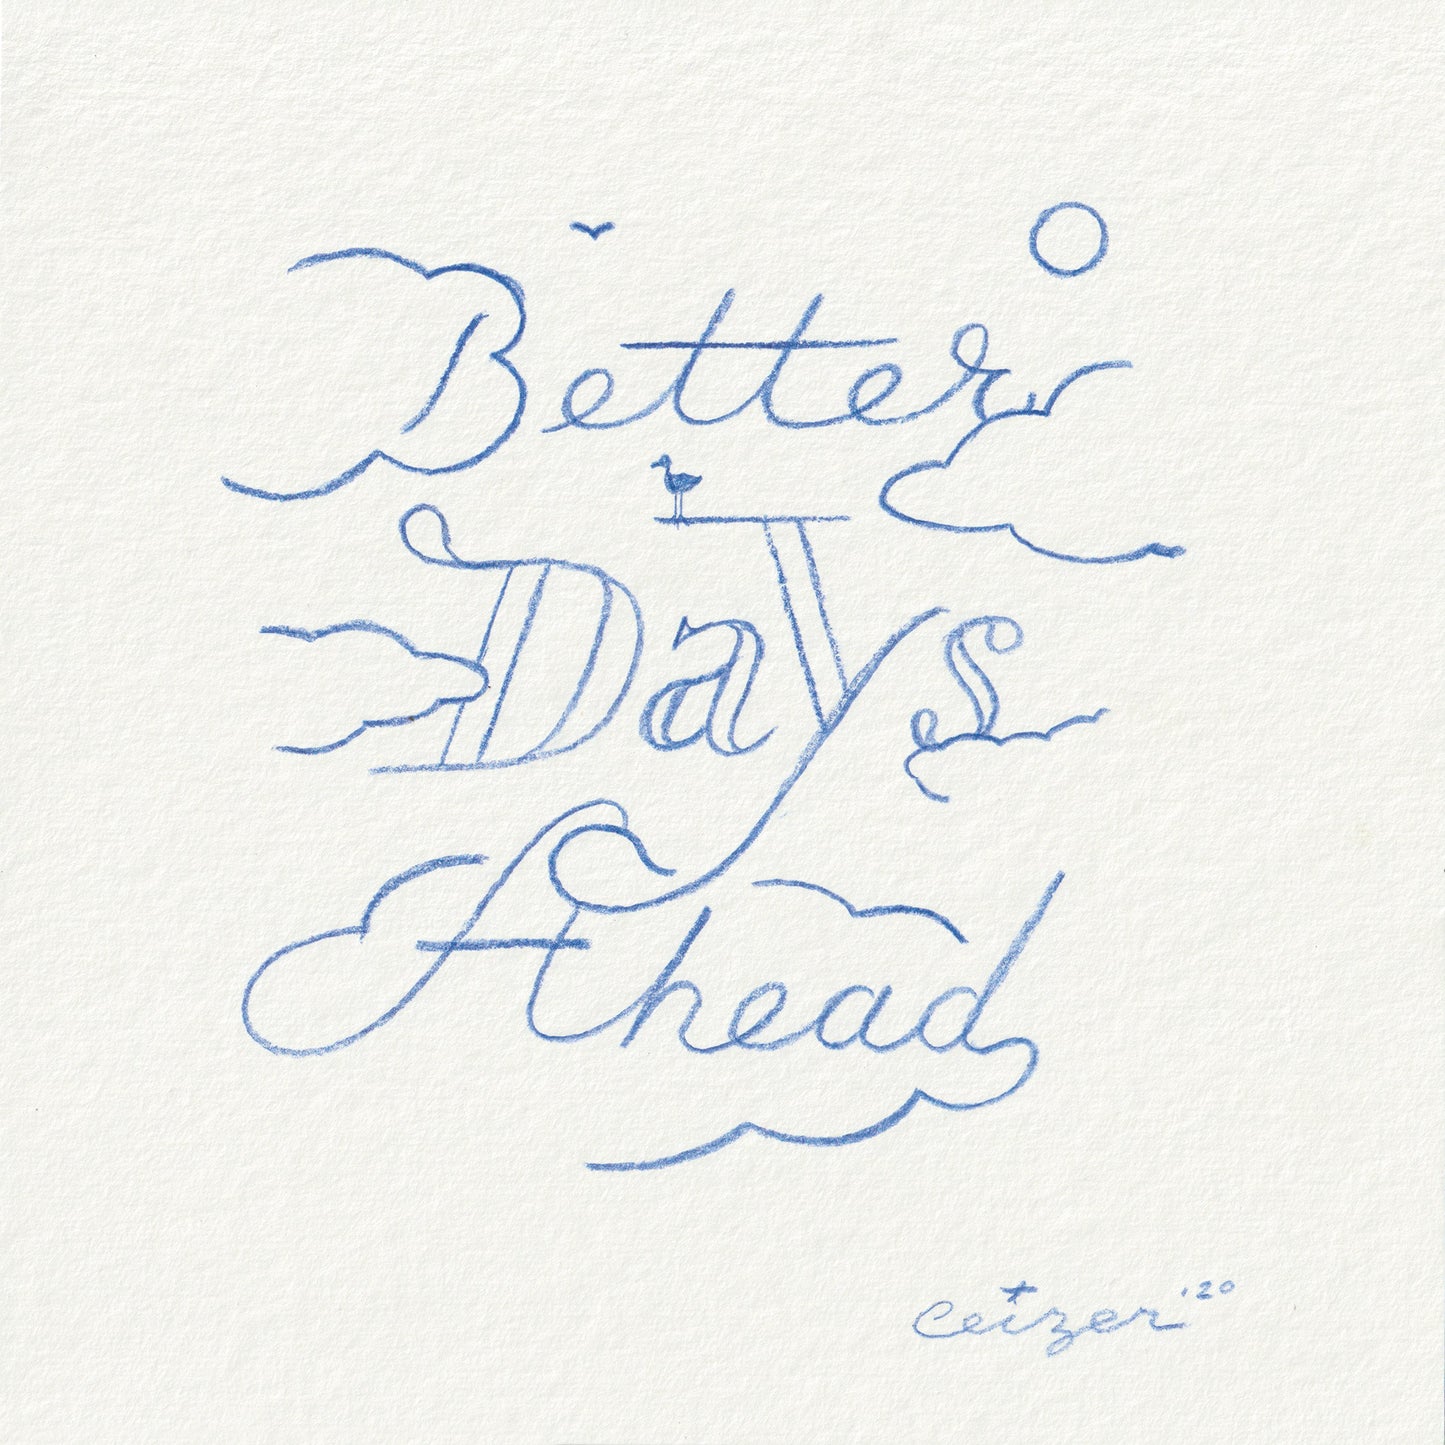 Better
Days
Ahead
Ceizer '20